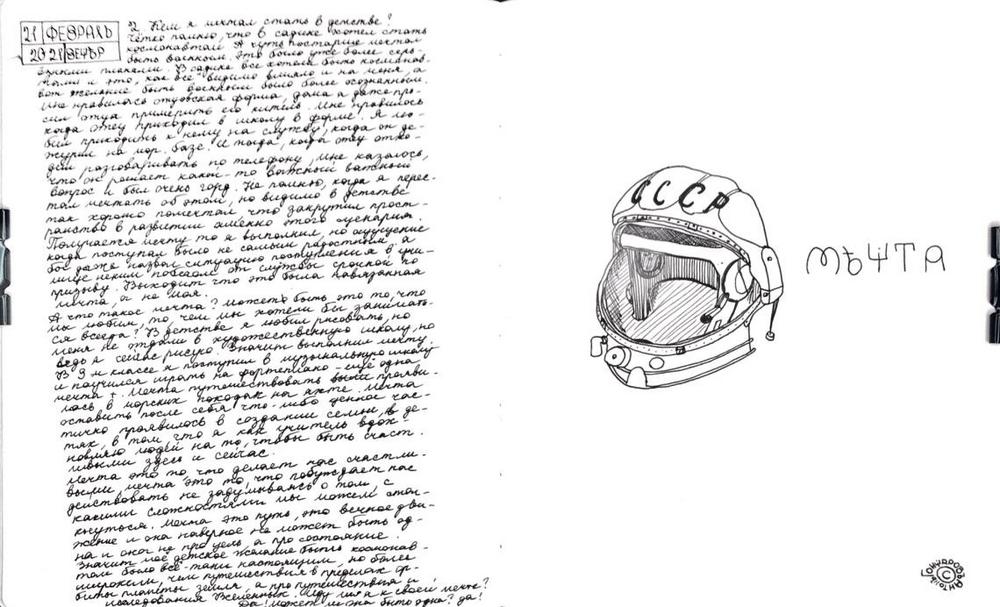 21 ФЕВРАЛЬ
2021 ВЕЧЕР
2. Кем я мечтал стать в детстве?
Чётко помню, что в садике хотел стать
космонавтом. А чуть постарше мечтал
быть военным. Это было уже более серь-
ёзными планами. В садике все хотели быть космонав-
тами и это, как все видимо влияло и на меня, а
вот желание быть военным было более осознанным.
Мне нравилась отцовская форма, дома я даже про-
сил отца примерить его китель. Мне нравилось
когда отец приходил в школу в форме. Я лю-
бил приходить к нему на службу, когда он де-
журил на мор. базе. И тогда, когда отец отхо-
дил разговаривать по телефону, мне казалось,
что он решает какой-то важный важный
вопрос и был очень горд. Не помню, когда я перес-
тал мечтать об этом, но видимо в детстве
так хорошо помечтал что закрутил прост-
ранство в развитии именно этого сценария.
Получается мечту то я выполнил, но ощущение
когда поступал было не самым радостным, а
бог даже назвал ситуацию поступления в
неким побегом от службы срочной по
призыву. Выходит что это была навязанная
мечта, а не моя.
А что такое мечта? Может быть это то, что
мы любим, то, чем мы хотели бы занимать-
ся всегда? В детстве я любил рисовать, но
меня не отдали в художественную школу, но
ведь я сейчас рисую. Значит выполнил мечту.
В 3м классе я поступил в музыкальную школу
и научился играть на фортепиано - ещё одна
мечта +. Мечта путешествовать прояви-
лась в морских походах на яхте. Мечта
оставить после себя что-либо ценное час-
тично проявилось в создании семьи, в де-
тях, в том, что я как учитель вдох-
новляю людей на то, чтобы быть счаст-
ливыми здесь и сейчас.
Мечта это то что делает нас счастли-
выми, мечта это то, что побуждает нас
действовать не задумываясь о том, с
какими сложностями мы можем стол-
кнуться. Мечта это путь, это вечное дви-
жение и она наверное не может быть од-
на и она не про цель, а про состояние.
Значит моё детское желание быть космонав-
том было всё-таки настоящим, но более
широким, чем путешествия в пределах ор-
биты планеты земля, а про путешествия и
исследования Вселенных. Иду ли я к своей мечте?
Да! Может ли она быть одна? Да!
СССР
МѢЧТА
Гончарова Антона
©